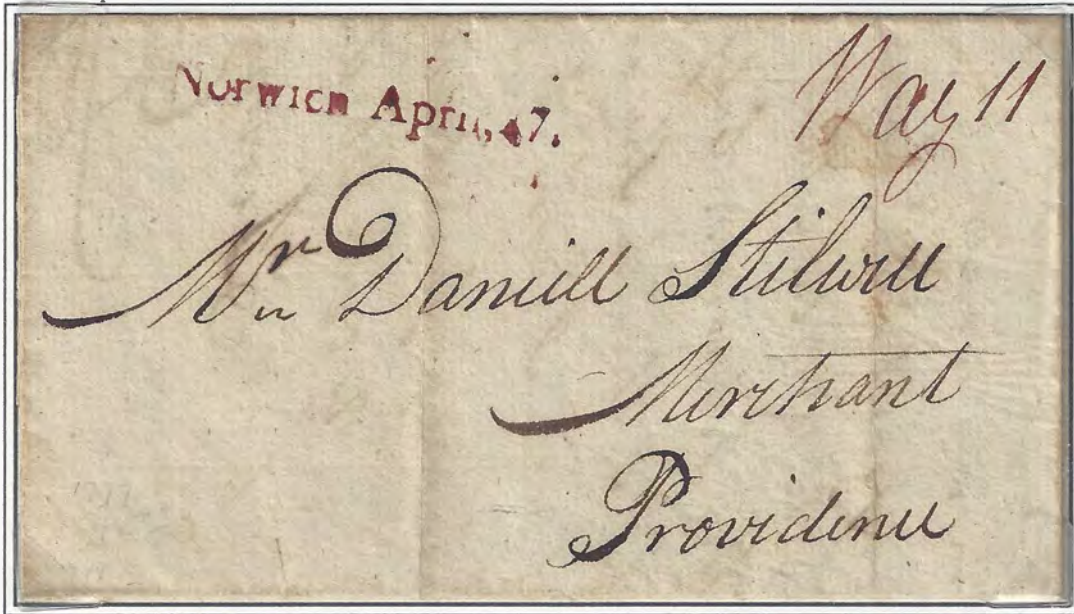 Norwich April, 7.
Way 11
Mr Daniell Stilwell
Merchant
Providence